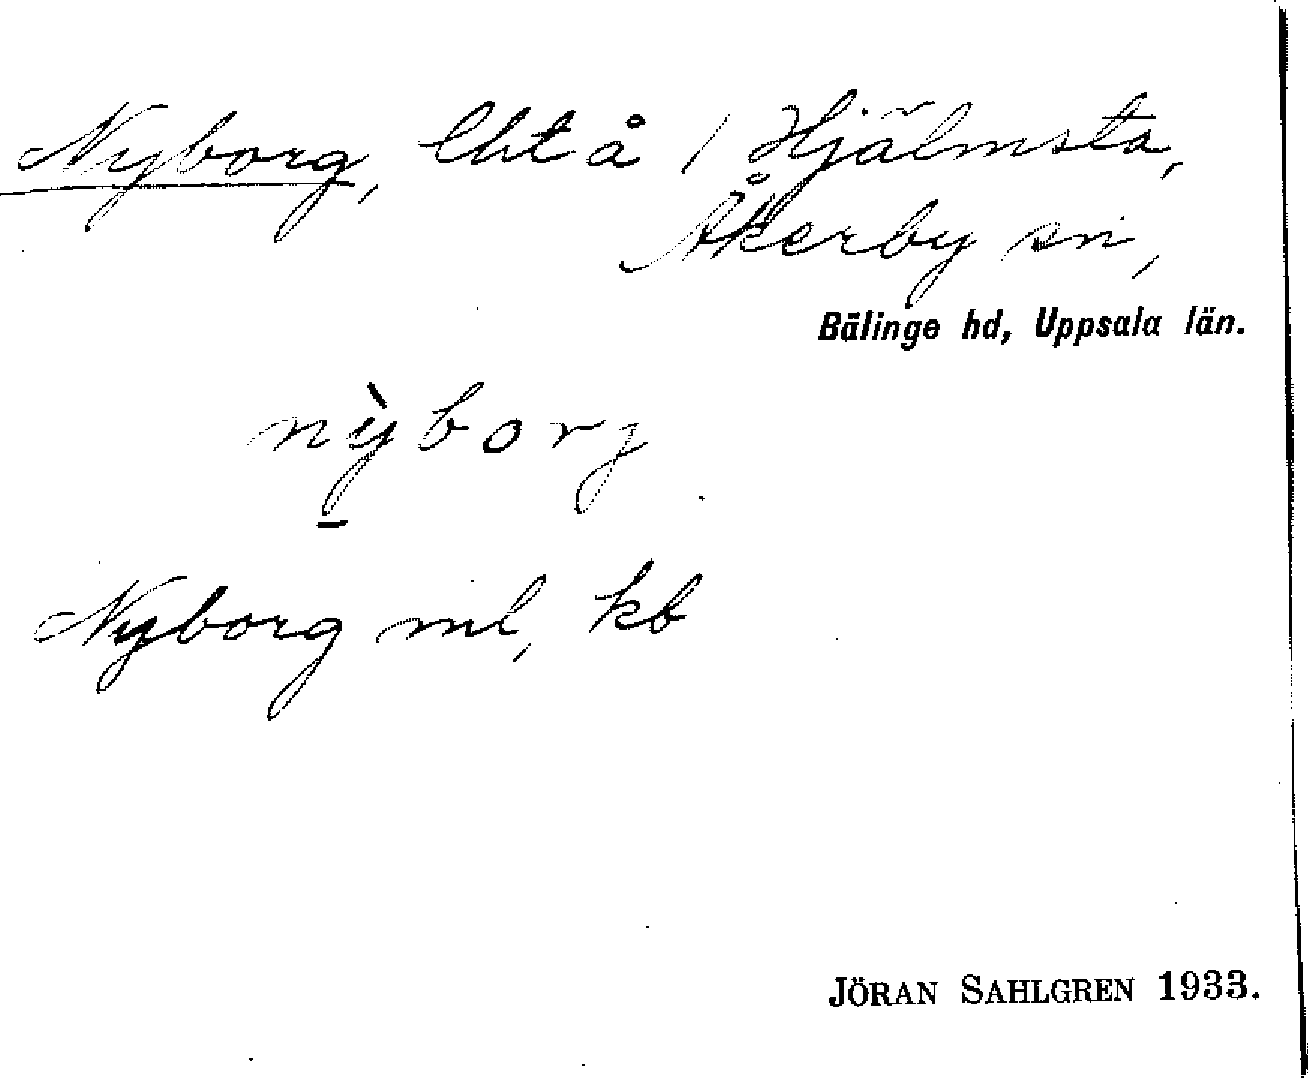 Nyborg, lht å / Hjälmsta,
Åkerby sn,
Bälinge hd, Uppsala län.
nỳborg
Nyborg ml, kb
JÖRAN SAHLGREN 1933.